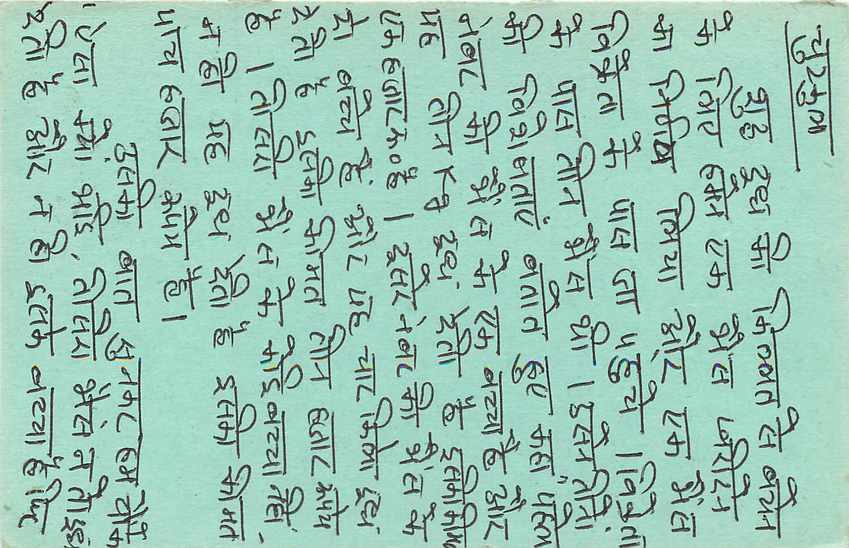 चुटकुला
शुद्ध दूध की किल्लत से बचने
के लिए हमने एक भैंस खरीदने
का निर्णय लिया और एक भैंस
विक्रेता के पास जा पहुंचे। विक्रेता
के पास तीन भैंस थी। उसने तीनो
की विशेषताएं बताते हुए कहा "पहले
नंबर की भैंस के एक बच्चा है और
यह तीन kg दूध देती है इसकी कीमत
एक हजार रू० है। दूसरे नंबर की भैंस के
दो बच्चे हैं और यह चार किलो दूध
देती है इसकी कीमत तीन हजार रूपये
है। तीसरी भैंस के कोई बच्चा नहीं
न ही यह दूध देती है इसकी कीमत
पांच हजार रूपये है।
उसकी बात सुनकर हम चौंके
"ऐसा क्यों भाई, तीसरी भैंस न तो दूध
देती है और न ही इसके बच्चा है फिर